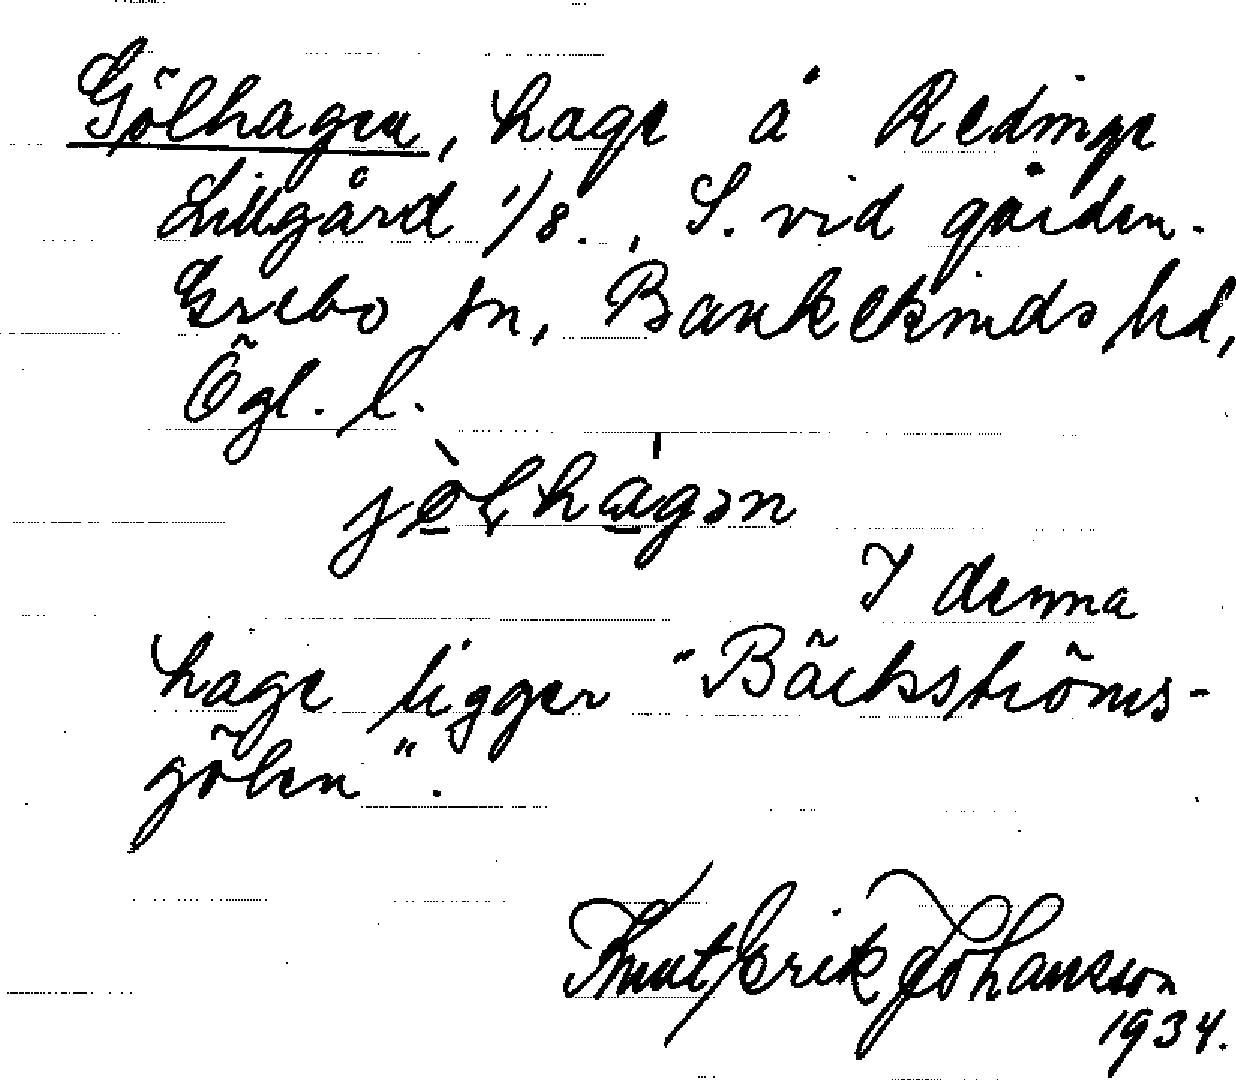 Gölhagen, hage å Redinge
Lillgård 1/8., S. vid gården.
Grebo sn, Bankekinds hd,
Ögl. l.
jö̀lhágən
I denna
hage ligger "Bäckströms-
gölen".
Knut Erik Johansson
1934.